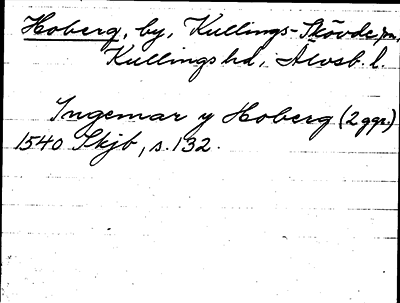 Hoberg, by, Kullings-Skövde sn,
Kullings hd, Älvsb. l.
Ingemar y Hoberg (2 ggr.)
1540 Skjb, s. 132.